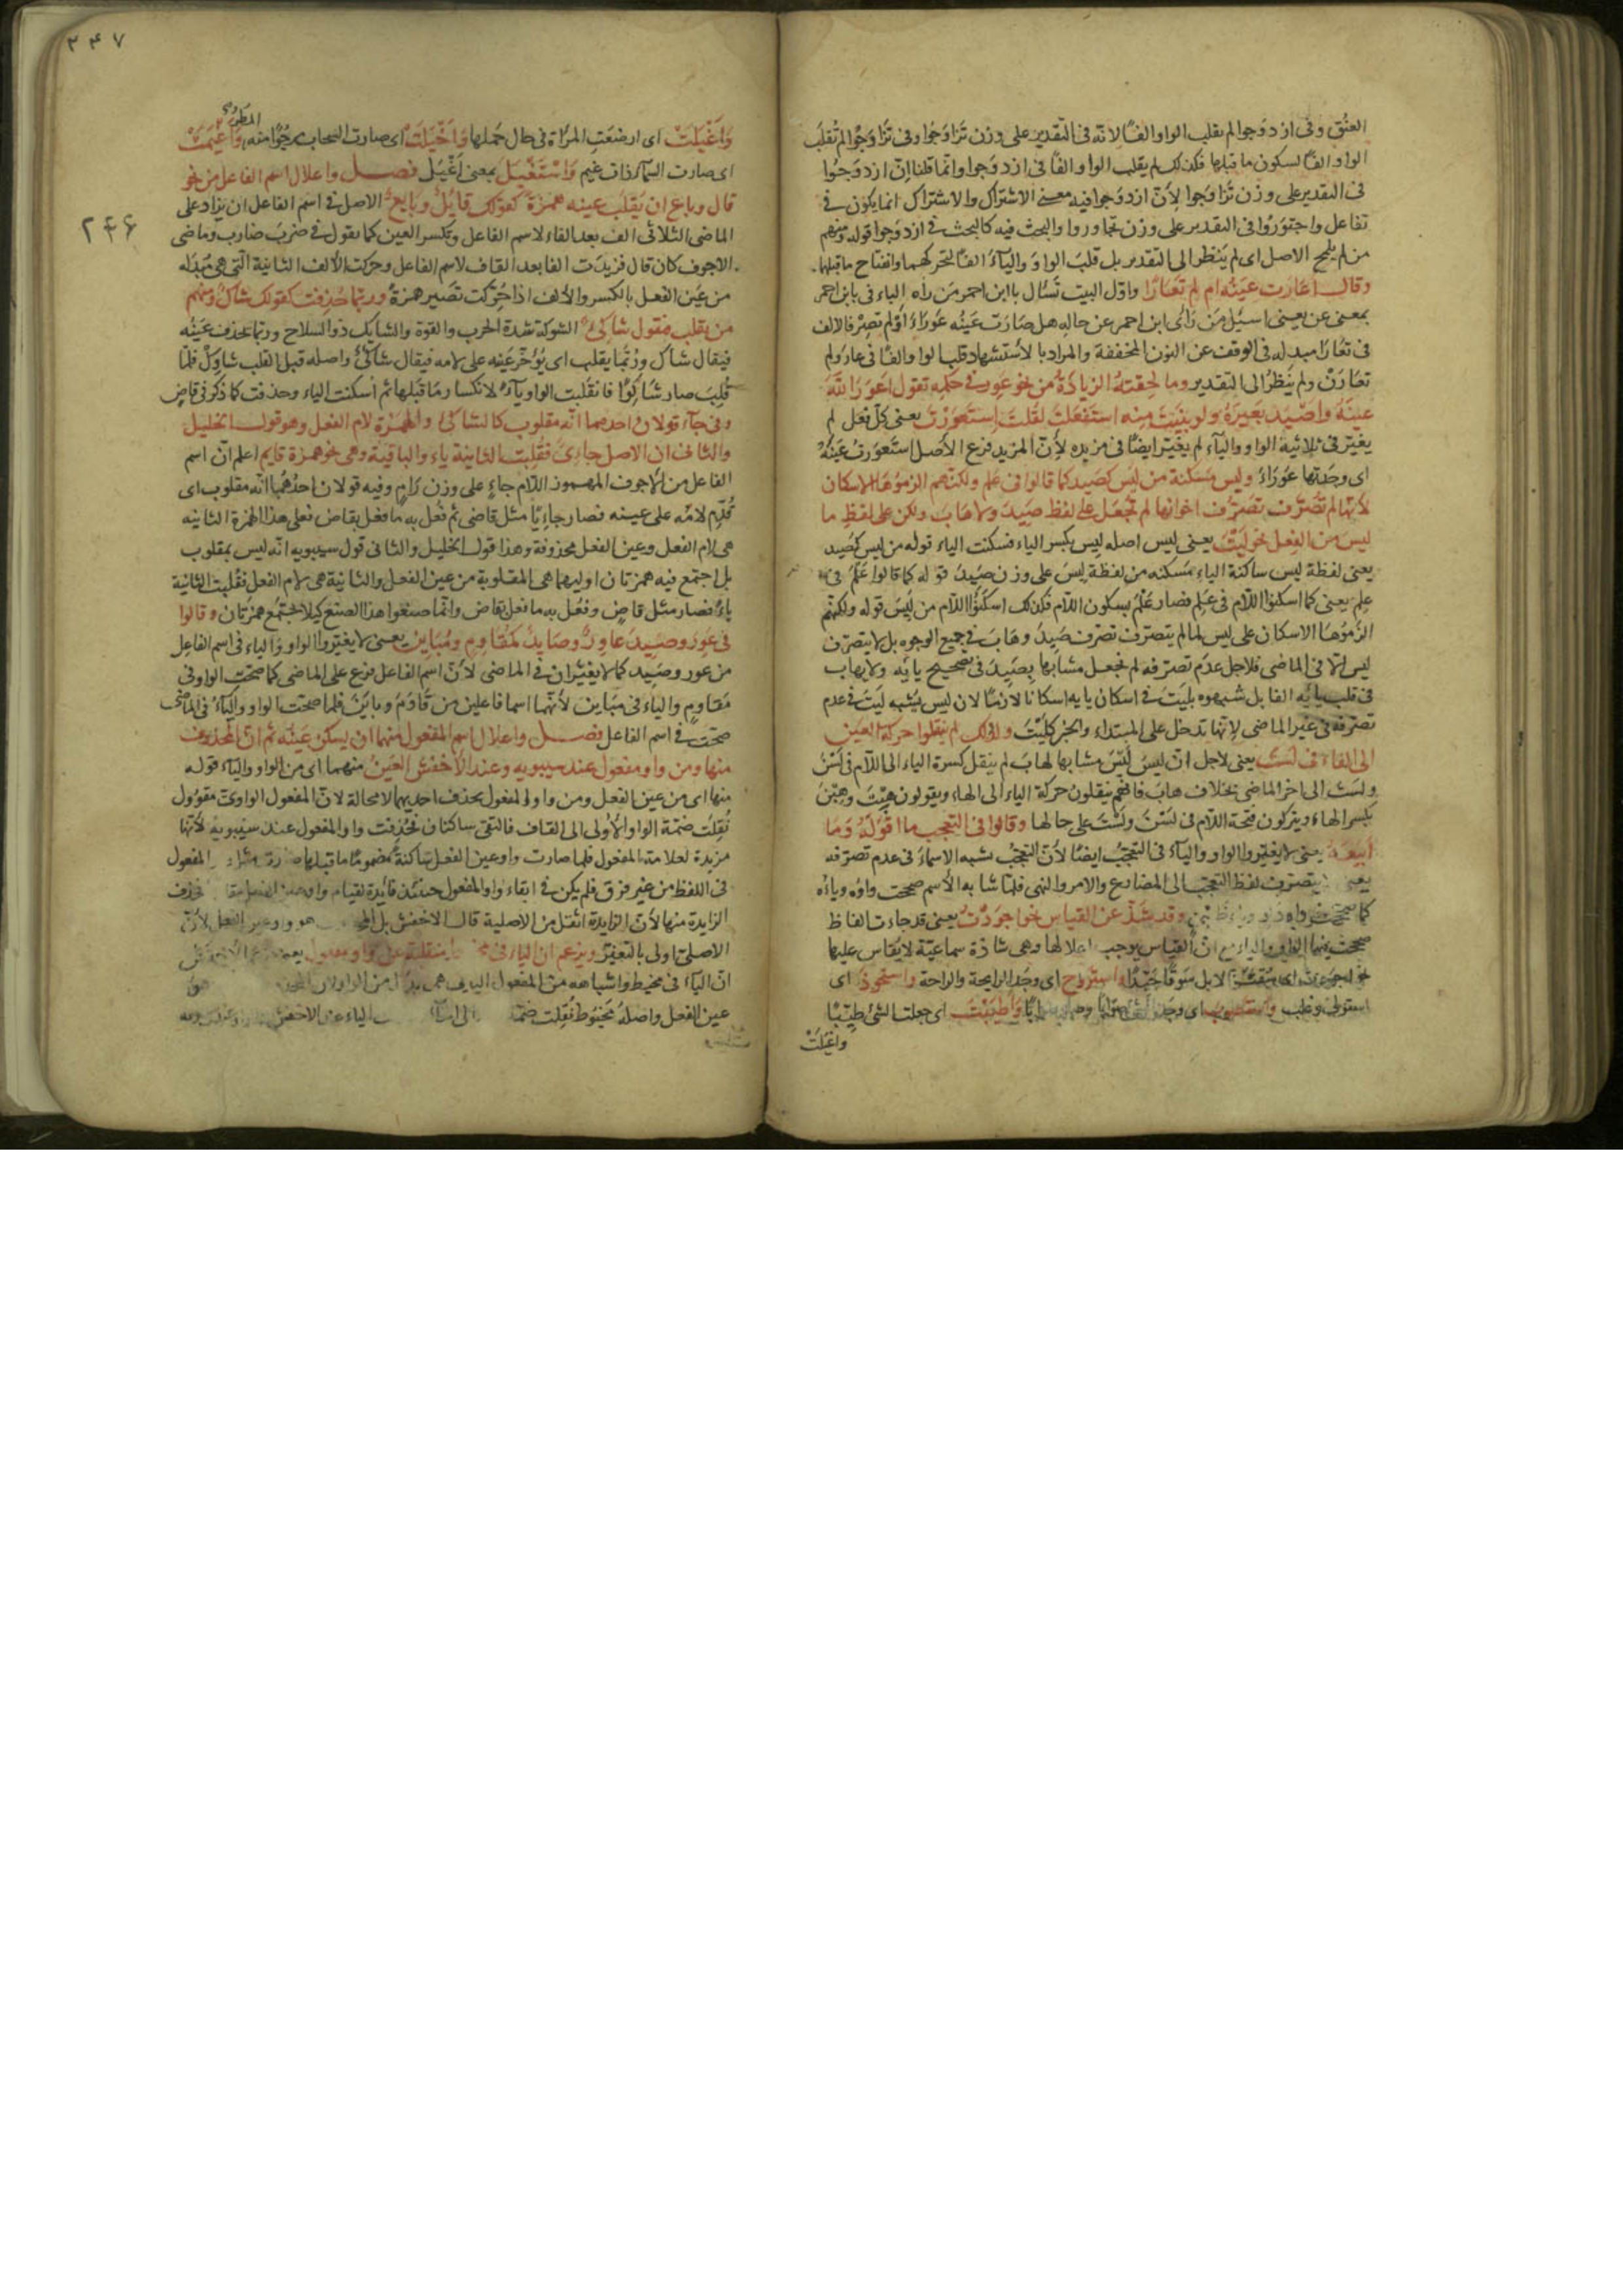 العنق وفى ازدوجوا لم يقلب الواو الفًا لانّه فى التقدير على وزن تَزَاوَجُوا وفى تَزَاوَجُوا لم تُقلَب
الواو الفًا لسكون ما قبلها فكذلك لم يقلب الواو الفًا فى ازدوَجوا وانّما قلنا انّ ازدوَجُوا
فى التقدير على وزن تَزَاوجوا لِأنّ ازدوَجوا فيه معنى الاشتراك والاشتراك انما يكون فى
تفاعل واجتوَرُوا فى التقدير على وزن تجاوروا والبحث فيه كالبحث فى ازدوَجوا قوله ومنهم
من لم يلمح الاصل اى لم يَنظر الى التقدير بل قلبَ الواوَ والياءَ الفًا لتحركهما وانفتاح ما قبلها
وقال اعَارَت عَينُه ام لم تَعَارَا واوّل البيت تَسُال باابن احمر مَن راه الباء فى بابن احمر
بمعنى عن يعنى اسيُل مَن رَاٰى ابن احمر عن حاله هل صَارَت عَينُه عَورَاءَ اَوْ لم تصِرْ فالالف
فى تعَارَا مبدلة فى الوقف عن النون المخففة والمراد بالاستشهاد قلب الواو الفًا فى عار ولم
تعَارَنْ ولم يَنظُرْ الى التقدير وما لحِقتهُ الزيادَةُ من نحو عَوِرَ فى حكمِه تقول اعوَرَ اللّٰهُ
عينَهُ واصْيَدَ بَعِيرَهُ ولو بنَيْتَ منه استَفعَلتُ لقُلتَ اِستَعوَرْتُ يعنى كلّ فعل لم
يغيّر فى ثلاثيه الواو والياء لم يغيّر ايضًا فى مزيده لأنّ المزيد فرع الأصل استَعوَرتُ عَينَهُ
اى وجَدتها عَورَاءَ وليسَ مُسَكّنة من لَيِسَ كصَيِدَ كما قالوا فى عَلِمَ عَلْمَ ولكنّهم الزموُهَا الاسكان
لأنّها لم تَصَرّف تصَرّف اخواتها لم تُجعَل على لفظ صَيِدَ ولا هَابَ ولكن على لفظ ما
ليسَ من الفعل نحو ليْتَ يعنى ليس اصله ليِس بكسر الياء فسكنت الياء قوله من ليِس كصَيِد
يعنى لفظة ليس ساكنة الياء مسكنه من لفظة ليِسَ على وزن صَيِدَ قوله كما قالوا عَلْمَ فى
علِمَ يعنى كما اسكنوا اللّام فى عَلِمَ فصار عَلْمَ بسكون اللّام فكذلك اسكنُوا اللّام من لَيِسَ قوله ولكنّهم
الزَمُوهَا الاسكان على ليس لما لم يتصرّف تصرّف صَيِدَ وهَابَ فى جميع الوجوه بل لا يتصرّف
ليس الّا فى الماضى فلاجل عدَم تصرّفه لم نجعل مشابها بِصَيِدَ فى تصحيح يائه ولا بهابَ
فى قلب يائه الفا بل شبهوه بليتَ فى اسكان يايه اسكانا لازمًا لان ليس يُشبه ليَتَ فى عدم
تصرّفه فى غير الماضى لِانّها تدخل على المبتداء والخبر كليْتَ ولذلك لم ينقلوا حركة العَين
الى الفاء فى لَسْتَ يعنى لاجل انّ ليسَ لَيسَ مشابها لهابَ لم ينقل كسرة الياء الى اللّام فى لَسْنَ
ولسْتَ الى اخر الماضى بخلاف هابَ فانّهم ينقلون حركة الياء الى الهاء ويقولون هِبْتَ وهِبْنَ
بكسر الهاء ويتركون فتحة اللّام فى لسَْنَ ولَسْتَ على حالها وقالوا فى التعجب ما اقْوَلَهُ وَمَا
اَبْيَعَهُ يعنى لا يغيّروا الواو والياء فى التعجّب ايضًا لأنّ التعجّبَ يشبه الاسماءَ فى عدم تصرّفه
يتصرّف لفظ التعجّب الى المضارع والامر والنهى فلمّا شابه الأسم صححت واوُه وياؤُه
كما صححت وقد شذّ عن القياس نحو اجوَدْتُ يعنى قد جاءت الفاظ
صححت فيها الواو والياء مع انّ القياس يوجب اعلالها وهى شاذة سماعيّة لا يقاس عليها
نحو اجوَدتُ الابل سَوقًا جَيّدًا واستروَح اى وجَد الرايحة والراحة واستحوذ اى
استولى وغلب واستصوَب اى وجَد واَطْيَبْتَ اى جعلت الشئ طيّبًا
واغيَلَتْ
٣٤٧
المطر
وَاَغْيَلَتْ اى ارضعَتِ المرَاة فى حال حَملها وَاَخْيَلَتْ اى صارت السحاب مرجُوّا منه واَغْيَمَتْ
اى صارت السّماءُ ذات غيم وَاسْتَغْيَلَ بمعنى اَغْيَلَ فصل واعلال اسم الفاعل من نحو
قال وباع ان تقلب عينه همزةً كقولك قايُل وبايعُ الاصل فى اسم الفاعل ان يزاد على
٢٤۶
الماضى الثلاثى الف بعد الفاء لاسم الفاعل وبكسر العين كما يقول فى ضرَبَ ضَارب وماضى
الاجوف كان قال فزيدَت الفا بعد القاف لاسم الفاعل وحركت الألف الثانية الّتى هى مُبدَله
من عين الفعل بالكسر والألف اذا حُرّكت تَصير همزةً وربّما حُذِفت كقولك شاكٌ ومنهم
من يقلب فيقول شاكِى الشوكة شدة الحرب والقوة والشايك ذو السلاح وربّما يحذف عَينُه
فيقال شاك ورُبمّا يقلب اى يُؤخّر عَينه على لامه فيقال شاكى واصله قبل القلب شاوِكٌ فلمّا
قُلِبَ صار شَاكِوًا فانقلبت الواو ياءً لانكسار مَا قبلها ثم اُسكنت الياء وحذفت كما ذكر فى قاضٍ
وفى جاءَ قولانِ احدهما انّه مقلوب كالشاكى والهمْزة لام الفعل وهو قول الخليل
والثانى انّ الاصل جاءِىٌ فقُلِبت الثانية ياءً والباقية وهى نحو همزة قايم اعلم انّ اسم
الفاعل من الأجوف المهموز اللّام جاءٍ على وزن رَامٍ وفيه قولان احدُهما انّه مقلوب اى
قُدّم لامُه على عينه فصار جاءِيًا مثل قاضى ثم فُعل به ما فعل بقاضٍ فعلى هذا الهمزة الثانيه
هى لام الفعل وعين الفعل محذوفة وهذا قول الخليل والثانى قول سيبويه انّه ليس بمقلوب
بل اجتمع فيه همزتان اوليهما هى المقلوبة من عين الفعل والثانية هى لام الفعل فقُلبت الثانية
ياءً فصار مثل قاضٍ وفعُل به ما فعل بقاض وانّما صنعوا هذا الصنع كيلا يجتمع همزتان وقالوا
فى عَوِرَ وصَيِدَ عاوِرٌ وصَايِدٌ كمُقاوِمٍ ومُبَايِن يعنى لا يغيّروا الواو وَالياء فى اسم الفاعِل
من عور وصَيِد كما لا يغيّران فى الماضى لأنّ اسم الفاعل فرع على الماضى كما صَحّت الواو فى
مَقاوِم والياء فى مبَاين لأنّهما اسما فاعلين من قَاوَمَ وبايَنَ فلما صحّت الواو والياءُ فى الماضى
صحّت فى اسم الفاعل فصل واعلال اسم المفعول منهما ان يسكن عَينُه ثم انّ المحذوف
منها ومن واو مفعول عند سيبويه وعند الأخفش العَينُ منهما اى من الواو والياء قوله
منها اى من عين الفعل ومن واو المفعول يحذف احديهما لا محالة لانّ المفعول الواوىّ مقوُول
نُقِلت ضمّة الواو الأولى الى القاف فالتقى ساكنان فحُذِفت واو المفعول عند سيبويه لأنّها
مزيدة لعلامة المفعول فلما صارت واو عين الفعل سَاكنةً مضمومًا ما قبلها المفعول
فى اللفظ من غير فرق فلم يكن فى ابقاء واو المفعول حينئذ فائدة لقيام تحذف
الزايدة منها لأنّ الزايدة اثقل من الاصلية قال الاخفش بل هو واو عين الفعل لأنّ
الاصلىّ اولى بالتغيّر ويزعم ان الياء فى منقلبة عن واو مفعول
انّ الياء فى مخيط واشباهه من المفعول هى بدَل من الواو لان هو
عين الفعل واصله مَخيُوط نُقِلت ضمّة الى الياء عند الاخفش